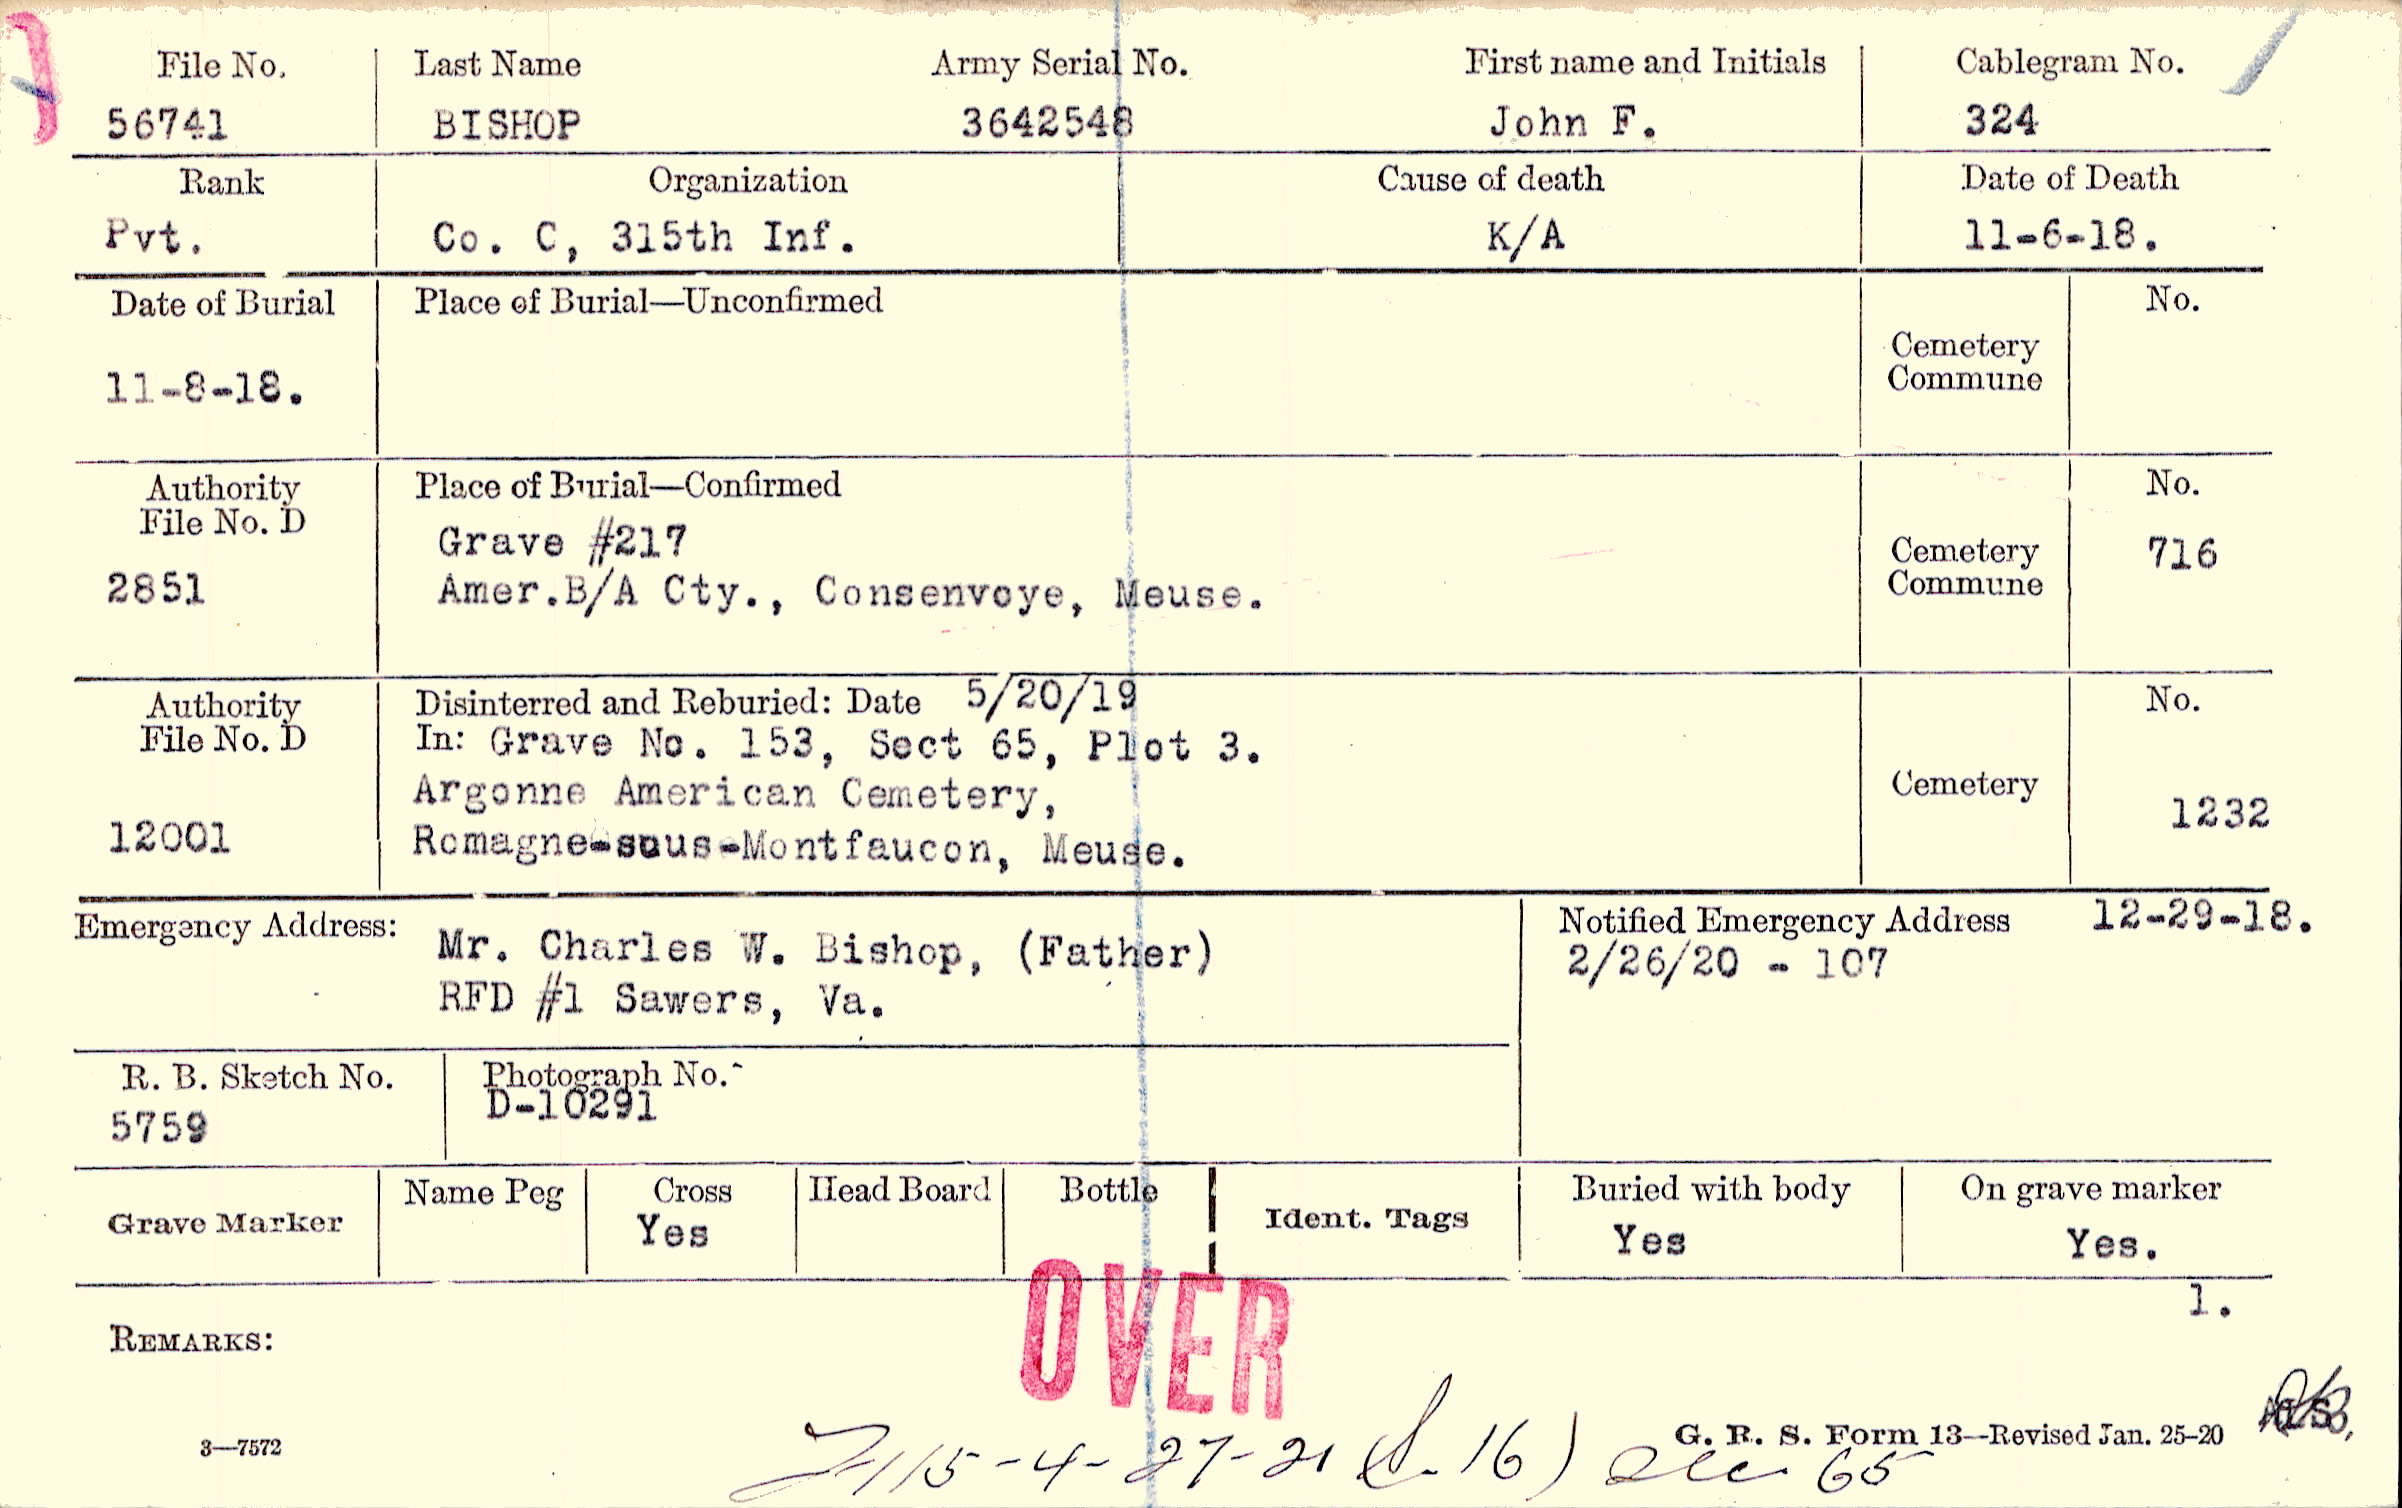 File No. Last Name Army Serial No. First name and Initials Cablegram No.
56741 BISHOP 3642548 John F. 324
Rank Organization Cause of death Date of Death
Pvt. Co. C, 315th Inf. K/A 11-6-18.
Date of Burial Place of Burial—Unconfirmed No.
Cemetery
Commune
11-8-18.
Authority Place of Burial—Confirmed No.
File No. D
Grave #217
Cemetery 716
Commune
2851 Amer.B/A Cty., Consenvoye, Meuse.
Authority Disinterred and Reburied: Date 5/20/19 No.
File No. D In: Grave No. 153, Sect 65, Plot 3.
Argonne American Cemetery, Cemetery 1232
12001 Romagne-sous-Montfaucon, Meuse.
Emergency Address: Notified Emergency Address 12-29-18.
Mr. Charles W. Bishop, (Father) 2/26/20 - 107
RFD #1 Sawers, Va.
R. B. Sketch No. Photograph No.
5759 D-10291
Grave Marker Name Peg Cross Head Board Bottle Ident. Tags Buried with body On grave marker
Yes Yes Yes.
1.
OVER
REMARKS:
3—7572 G. R. S. Form 13—Revised Jan. 25-20
115-4-27-21 16) 65